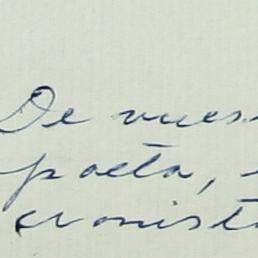 De vues
poeta,
cronist